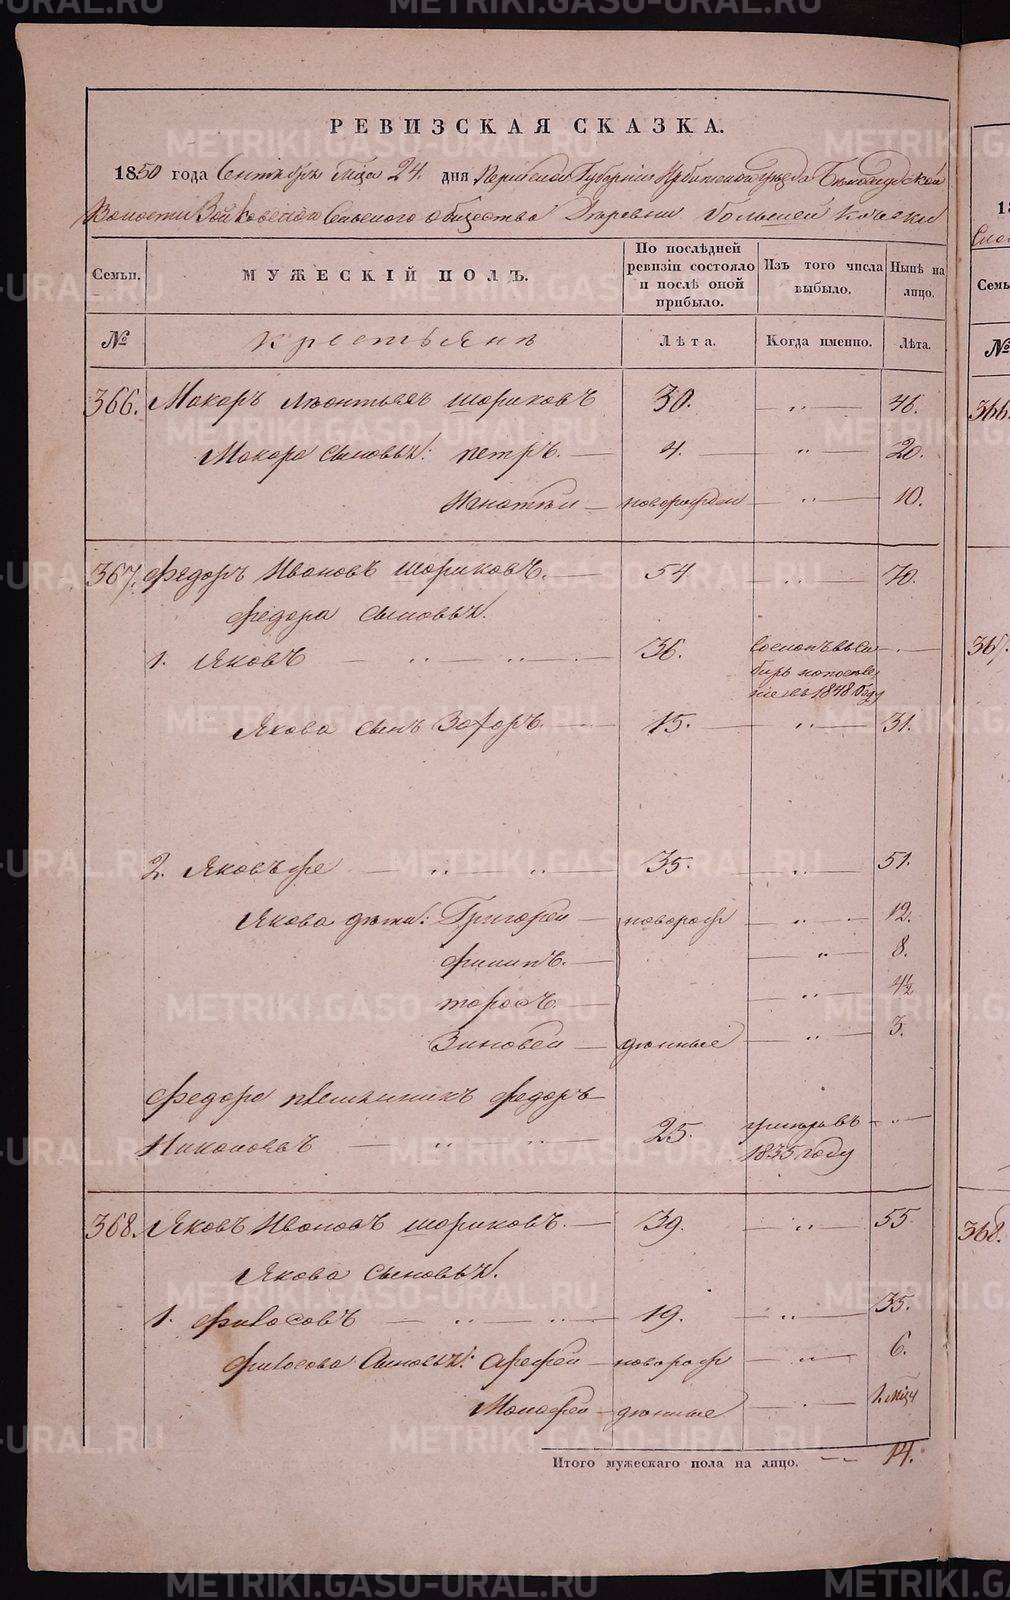 РЕВИЗСКАЯ СКАЗКА.
1850 года Сентября м͠ца 24. дня Пермской Губернiи Ирбитскаго уѣзда
Волости Сельскаго общества Деревни Большей Кочевки
Семьи.
МУЖЕСКIЙ ПОЛЪ.
По послѣдней ревизiи состояло и послѣ оной прибыло.
Изъ того числа выбыло.
Нынѣ на лицо.
№
Крестьянъ
Лѣта.
Когда именно.
Лѣта.
366. Макаръ Леонтьевъ Шориковъ 30. — „ — 46.
Макара сыновья: Петръ. — 4. — „ — 20.
Игнатей — новорожден — „ — 10.
367. Федоръ Ивановъ Шориковъ. — 54 — „ — 70.
Федора сыновья.
1. Яковъ — „ — „ — 36. Сосланъ въ Си — „ —
бирь на поселе
нiе въ 1848 году
Якова сынъ Захаръ. — 15. — „ — 31.
2. Яковъ же — „ — „ 35. — „ — 51.
Якова дѣти: Григорей — новорож — „ — 12.
Филипъ. — — „ — 8.
Тарасъ. — — „ — 4½
Зиновей — денные — „ — 3.
Федора племянникъ Федоръ
Никоновъ — „ — „ — 25. — „ —
1835 году
368. Яковъ Ивановъ Шориковъ. — 39. — „ — 55.
Якова сыновья.
1. Фирсовъ — „ — „ — 19. — „ — 35.
Сыновья: Арефей — новорож — „ — 6.
Малафей — денные — „ — 1. мѣся
Итого мужескаго пола на лицо. — — 14.
METRIKI.GASO-URAL.RU